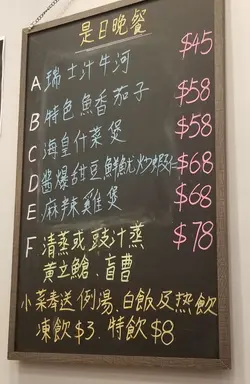 是日晚餐
A 瑞士汁牛河 $45
B 特色魚香茄子 $58
C 海皇什菜煲 $58
D 醬爆甜豆鮮魷炒蝦仁 $68
E 麻辣雞煲 $68
F 清蒸或豉汁蒸 $78
黃立鯧、盲曹
小菜奉送例湯、白飯及熱飲
凍飲$3、特飲$8